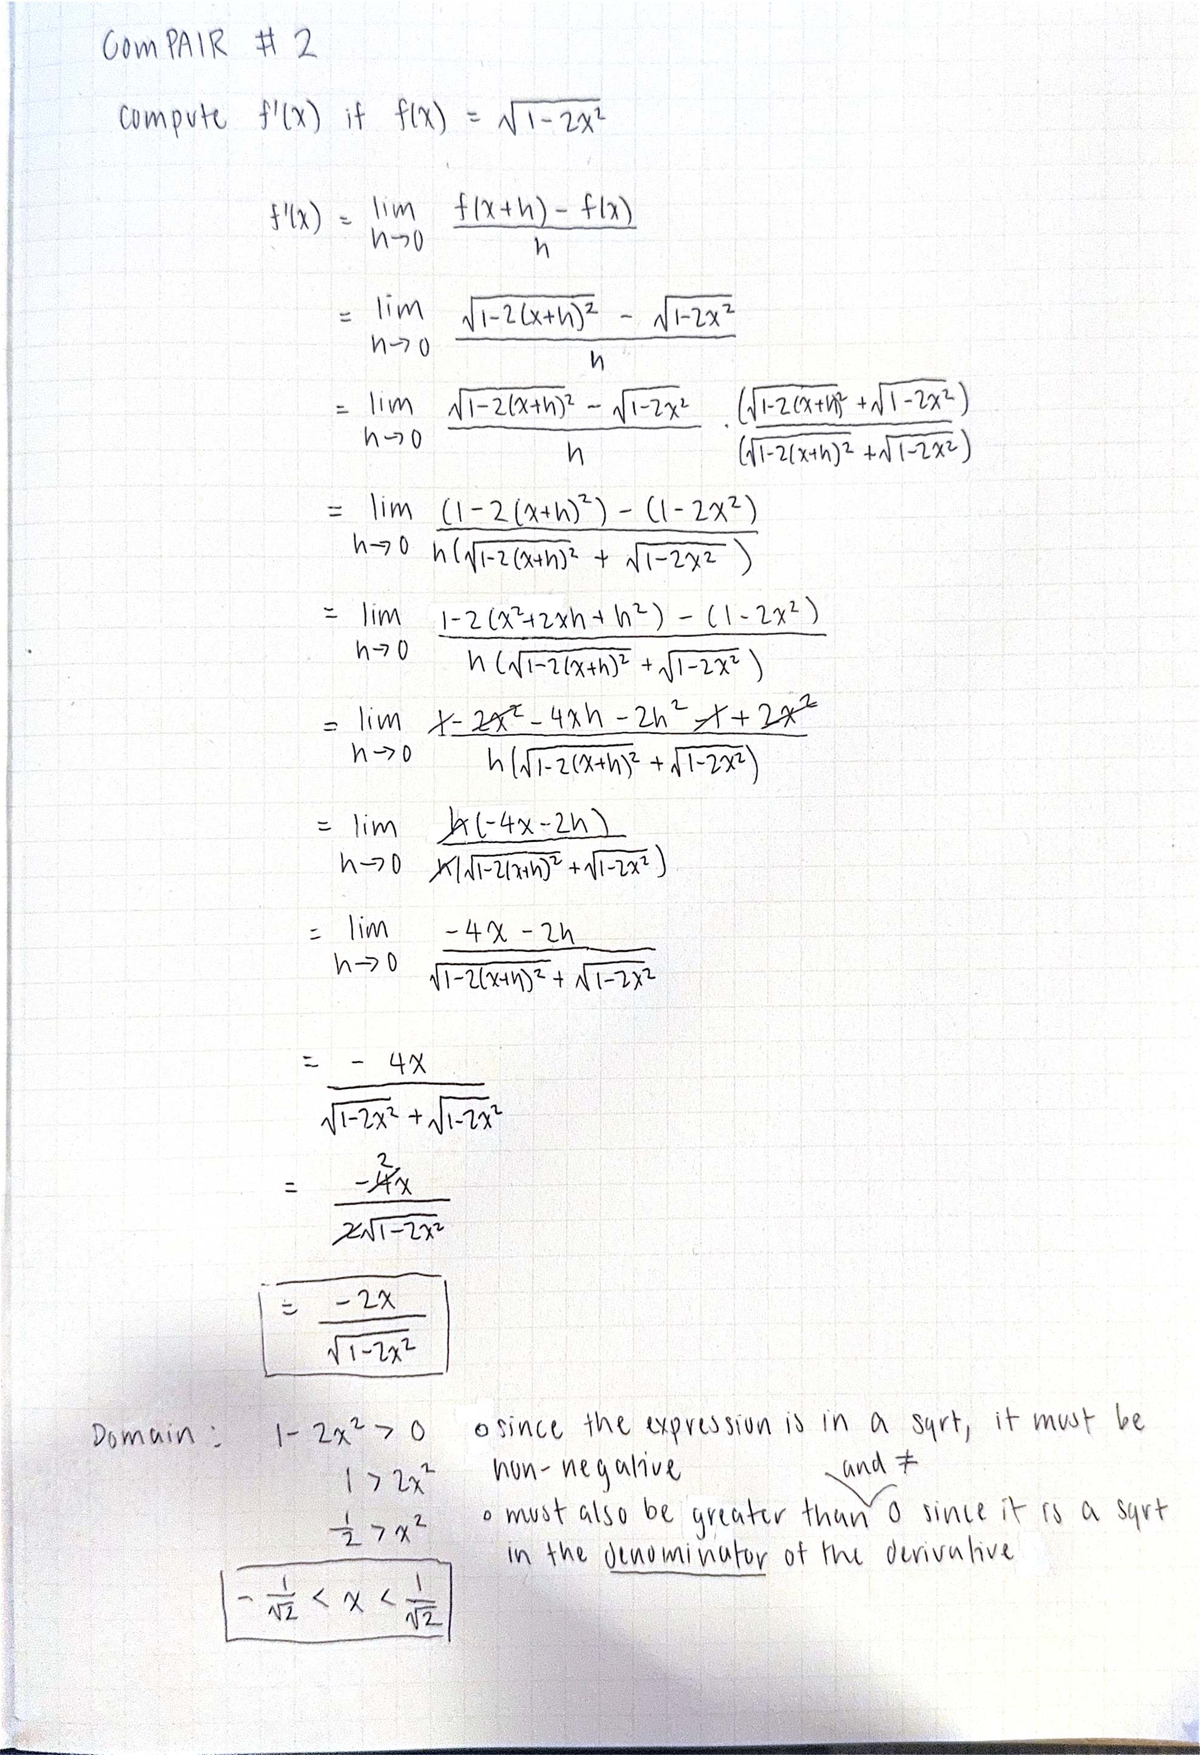 ComPAIR # 2
compute f'(x) if f(x) = √(1-2x²)
f'(x) = lim h→0 (f(x+h) - f(x)) / h
= lim h→0 (√(1-2(x+h)²) - √(1-2x²)) / h
= lim h→0 (√(1-2(x+h)²) - √(1-2x²)) / h · (√(1-2(x+h)²) + √(1-2x²)) / (√(1-2(x+h)²) + √(1-2x²))
= lim h→0 ((1-2(x+h)²) - (1-2x²)) / h(√(1-2(x+h)²) + √(1-2x²))
= lim h→0 (1-2(x²+2xh+h²) - (1-2x²)) / h(√(1-2(x+h)²) + √(1-2x²))
= lim h→0 (1-2x²-4xh-2h²-1+2x²) / h(√(1-2(x+h)²) + √(1-2x²))
= lim h→0 h(-4x-2h) / h(√(1-2(x+h)²) + √(1-2x²))
= lim h→0 (-4x-2h) / (√(1-2(x+h)²) + √(1-2x²))
= -4x / (√(1-2x²) + √(1-2x²))
2
= -4x / 2√(1-2x²)
= -2x / √(1-2x²)
Domain: 1-2x² > 0 o since the expression is in a sqrt, it must be
1 > 2x² non-negative and ≠
1/2 > x² o must also be greater than 0 since it is a sqrt
in the denominator of the derivative
-1/√2 < x < 1/√2